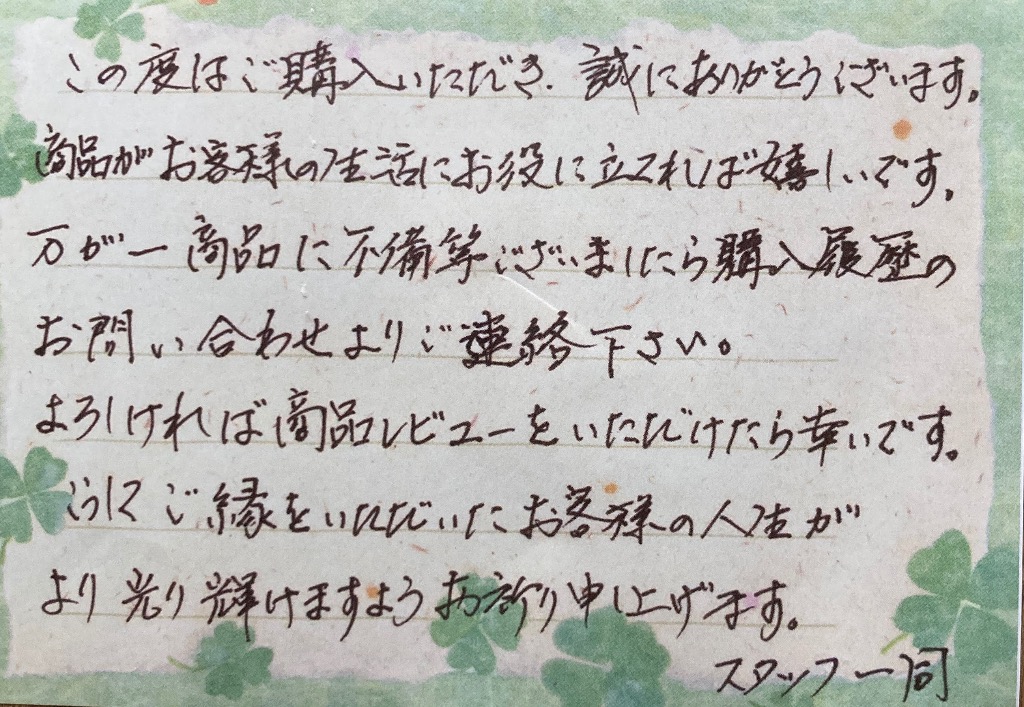 この度はご購入いただき、誠にありがとうございます。
商品がお客様の生活にお役に立てれば嬉しいです。
万が一商品に不備等ございましたら購入履歴の
お問い合わせよりご連絡下さい。
よろしければ商品レビューをいただけたら幸いです。
こうしてご縁をいただいたお客様の人生が
より光り輝けますようお祈り申し上げます。
スタッフ一同